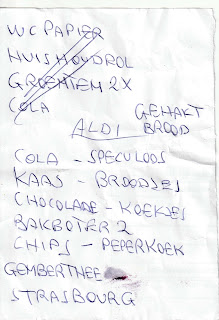 WC PAPIER
HUISHOUDROL
GROENTEM 2X
COLA
GEHAKT
ALDI BROOD
COLA - SPECULOOS
KAAS - BROODJES
CHOCOLADE - KOEKJES
BAKBOTER 2
CHIPS - PEPERKOEK
GEMBERTHEE
STRASBOURG